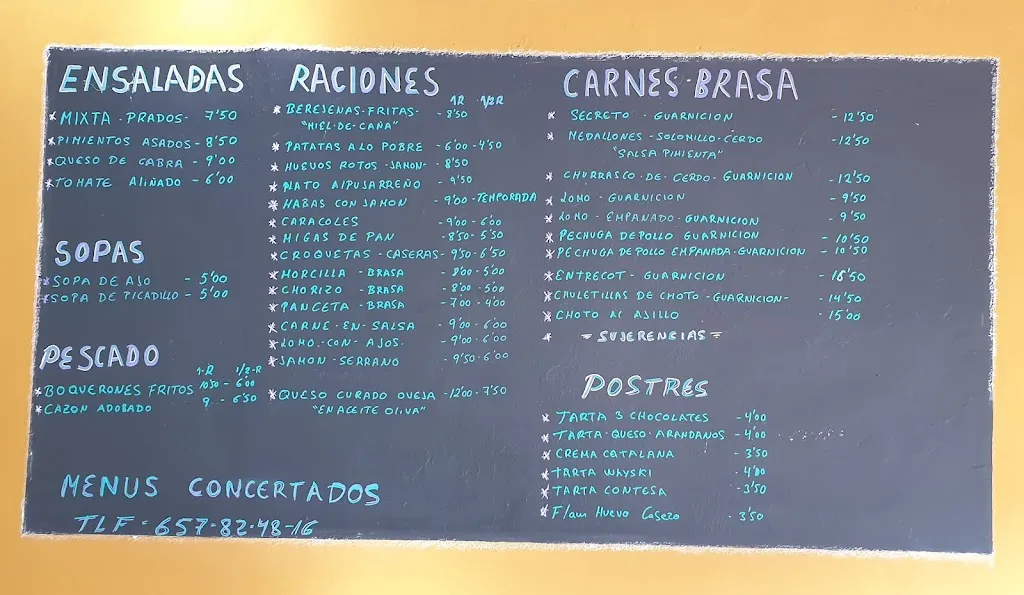 ENSALADAS
*MIXTA - PRADOS - 7'50
*PIMIENTOS ASADOS - 8'50
*QUESO DE CABRA - 9'00
*TOMATE ALIÑADO - 6'00
SOPAS
*SOPA DE AJO - 5'00
*SOPA DE PICADILLO - 5'00
PESCADO
1-R 1/2-R
*BOQUERONES FRITOS 10'50 - 6'00
*CAZON ADOBADO 9 - 6'50
MENUS CONCERTADOS
TLF - 657-82-48-16
RACIONES
1R 1/2R
*BEREJENAS-FRITAS- - 8'50
"MIEL-DE-CAÑA"
*PATATAS A LO POBRE - 6'00 - 4'50
*HUEVOS ROTOS - JAMON - 8'50
*PLATO ALPUJARREÑO - 9'50
*HABAS CON JAMON - 9'00 - TEMPORADA
*CARACOLES - 9'00 - 6'00
*MIGAS DE PAN - 8'50 - 5'50
*CROQUETAS - CASERAS - 9'50 - 6'50
*MORCILLA - BRASA - 8'00 - 5'00
*CHORIZO - BRASA - 8'00 - 5'00
*PANCETA - BRASA - 7'00 - 4'00
*CARNE - EN - SALSA - 9'00 - 6'00
*LOMO - CON - AJOS - 9'00 - 6'00
*JAMON - SERRANO - 9'50 - 6'00
*QUESO CURADO OVEJA - 12'00 - 7'50
"EN ACEITE OLIVA"
CARNES-BRASA
* SECRETO - GUARNICION - 12'50
* MEDALLONES - SOLOMILLO - CERDO - 12'50
"SALSA PIMIENTA"
* CHURRASCO - DE - CERDO - GUARNICION - 12'50
* LOMO - GUARNICION - 9'50
* LOMO - EMPANADO - GUARNICION - 9'50
* PECHUGA DE POLLO GUARNICION - 10'50
* PECHUGA DE POLLO EMPANADA - GUARNICION - 10'50
*ENTRECOT - GUARNICION - 16'50
*CHULETILLAS DE CHOTO - GUARNICION - - 14'50
*CHOTO AL AJILLO - 15'00
* = SUJERENCIAS =
POSTRES
* TARTA 3 CHOCOLATES - 4'00
* TARTA - QUESO - ARANDANOS - 4'00
* CREMA CATALANA - 3'50
* TARTA WHYSKI - 4'00
* TARTA CONTESA - 3'50
* Flan Huevo Casero - 3'50